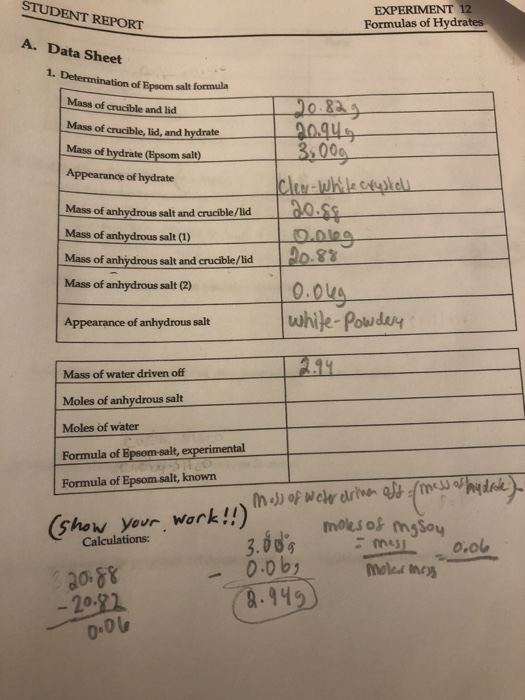 STUDENT REPORT
EXPERIMENT 12
Formulas of Hydrates
A. Data Sheet
1. Determination of Epsom salt formula
Mass of crucible and lid 20.82g
Mass of crucible, lid, and hydrate 20.94g
Mass of hydrate (Epsom salt) 3.00g
Appearance of hydrate Clear-White crystals
Mass of anhydrous salt and crucible/lid 20.88
Mass of anhydrous salt (1) 0.06g
Mass of anhydrous salt and crucible/lid 20.88
Mass of anhydrous salt (2) 0.06g
Appearance of anhydrous salt White-Powdery
Mass of water driven off 2.94
Moles of anhydrous salt
Moles of water
Formula of Epsom salt, experimental
Formula of Epsom salt, known
Mass of water driven off = (mass of hydrate) -
(show your work!!)
Calculations:
20.88
- 20.82
0.06
3.00g
- 0.06g
2.94g
moles of MgSO4
= mass
molar mass
= 0.06